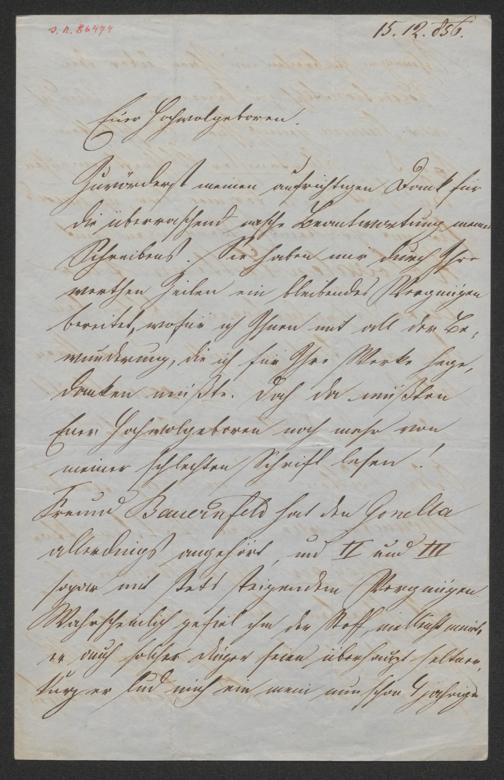 J. N. 86474
15.12.856.
Euer Hochwolgeboren.
Zuvörderst meinen aufrichtigen Dank für
die überraschend rasche Beantwortung meines
Schreibens. Sie haben mir durch Ihre
werthen Zeilen ein bleibendes Vergnügen
bereitet, wofür ich Ihnen mit all der Be-
wunderung, die ich für Ihre Werke hege,
danken müßte. Doch da müßten
Euer Hochwolgeboren noch mehr von
meiner schlechten Schrift lesen!
Freund Bauernfeld hat den Gonella
allerdings angehört, und II und III
sogar mit stets steigendem Vergnügen
Wahrscheinlich gefiel ihm der Stoff,
er auch solche Dinge seien überhaupt
er lud mich ein mein nun schon jährige